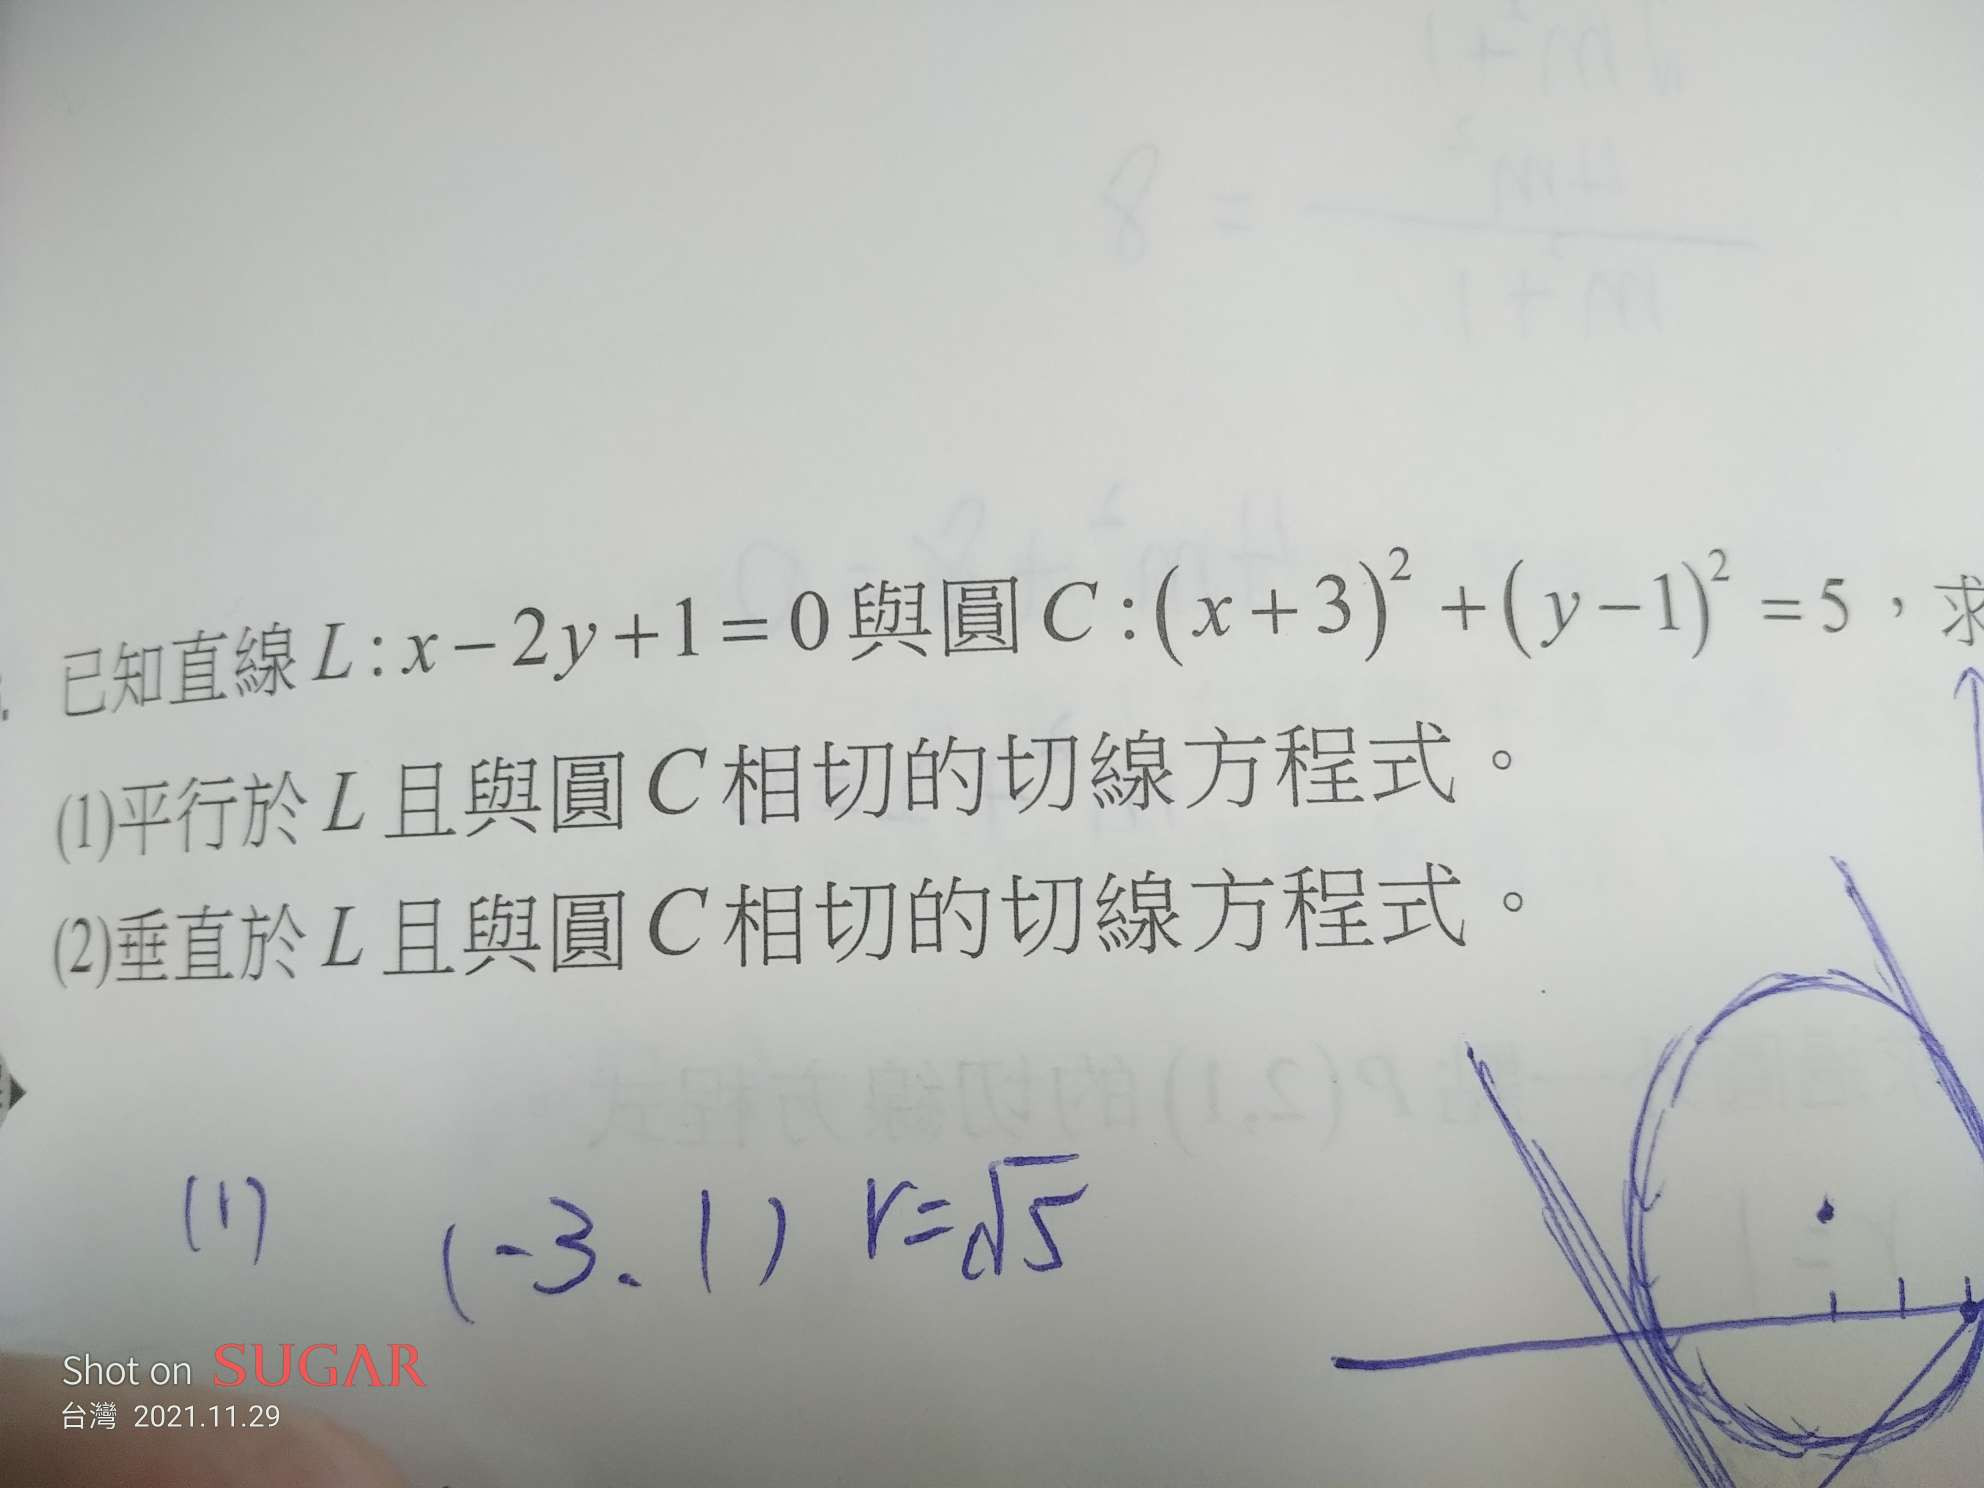 已知直線 L : x − 2y + 1 = 0 與圓 C : (x + 3)² + (y − 1)² = 5，求
(1)平行於 L 且與圓 C 相切的切線方程式。
(2)垂直於 L 且與圓 C 相切的切線方程式。
(1) (-3、1) r=√5
Shot on SUGAR
台灣 2021.11.29